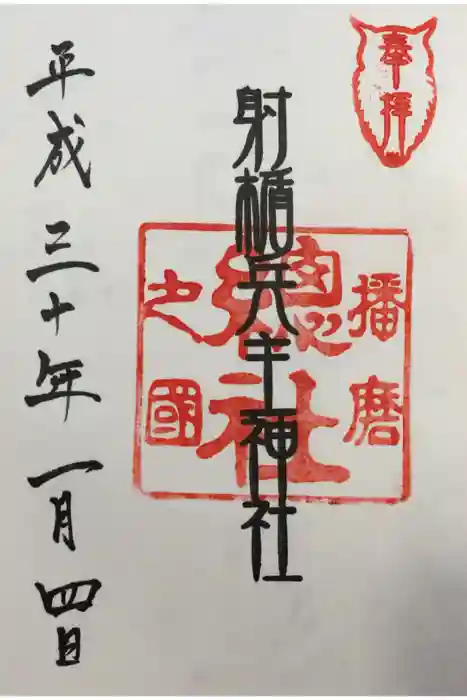 奉拝
播磨
之國
總社
射楯兵主神社
平成三十年一月四日